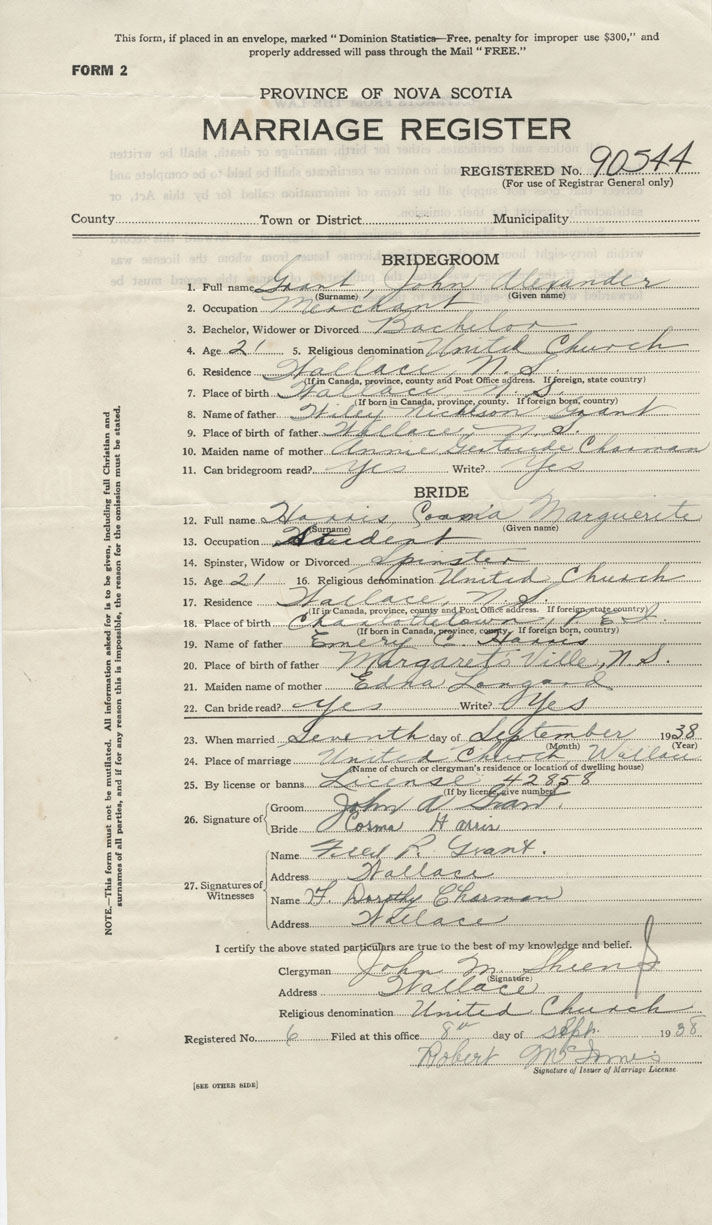 This form, if placed in an envelope, marked "Dominion Statistics—Free, penalty for improper use $300," and
properly addressed will pass through the Mail "FREE."
FORM 2
PROVINCE OF NOVA SCOTIA
MARRIAGE REGISTER
REGISTERED No. 90544
(For use of Registrar General only)
County Town or District Municipality
BRIDEGROOM
1. Full name Grant, John Alexander
(Surname) (Given name)
2. Occupation Merchant
3. Bachelor, Widower or Divorced Bachelor
4. Age 21 5. Religious denomination United Church
6. Residence Wallace, N.S.
(If in Canada, province, county and Post Office address. If foreign, state country)
7. Place of birth Wallace N.S.
(If born in Canada, province, county. If foreign born, country)
8. Name of father Grant
9. Place of birth of father Wallace, N.S.
10. Maiden name of mother Annie Gertrude Charman
11. Can bridegroom read? Yes Write? Yes
BRIDE
12. Full name Harris Marguerite
(Surname) (Given name)
13. Occupation Student
14. Spinster, Widow or Divorced Spinster
15. Age 21 16. Religious denomination United Church
17. Residence Wallace, N.S.
(If in Canada, province, county and Post Office address. If foreign state country)
18. Place of birth Charlottetown, P.E.I.
(If born in Canada, province, county. If foreign born, country)
19. Name of father Emery E. Harris
20. Place of birth of father Margaret's Ville, N.S.
21. Maiden name of mother Edna Longard
22. Can bride read? Yes Write? Yes
23. When married Seventh day of September 1938
(Month) (Year)
24. Place of marriage United Church Wallace
(Name of church or clergyman's residence or location of dwelling house)
25. By license or banns License 42858
(If by license, give number)
26. Signature of
Groom John A Grant.
Bride Corma Harris
27. Signatures of Witnesses
Name R. Grant.
Address Wallace
Name F. Dorothy Charman
Address Wallace
I certify the above stated particulars are true to the best of my knowledge and belief.
Clergyman John M.
(Signature)
Address Wallace
Religious denomination United Church
Registered No. 6 Filed at this office 8th day of Sept. 1938
Robert McInnis
Signature of Issuer of Marriage License.
[SEE OTHER SIDE]
NOTE.—This form must not be mutilated. All information asked for is to be given, including full Christian and
surnames of all parties, and if for any reason this is impossible, the reason for the omission must be stated.